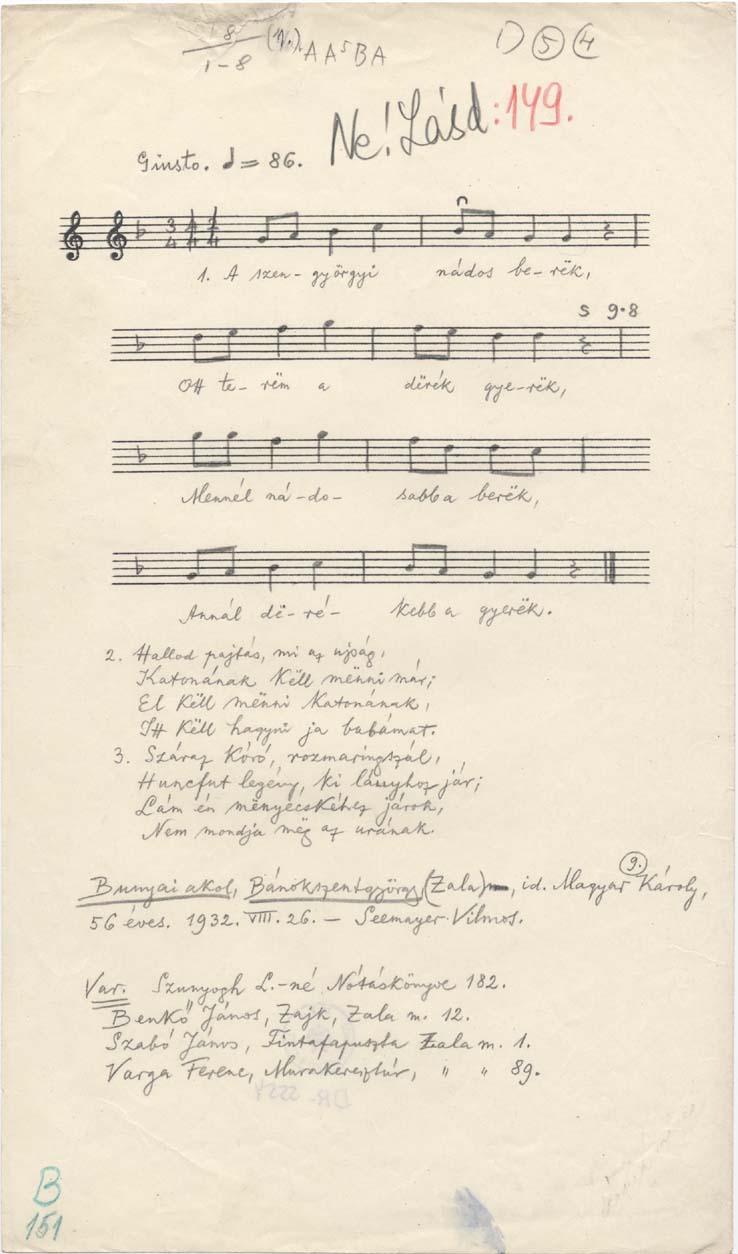 18 (V.) AA⁵BA 1) ⑤ 4
1-8
Ne! Lásd: 149.
Giusto. ♩= 86.
1. A szen-györgyi nádos be-rëk,
5 9·8
Ott te-rëm a dërék gye-rëk,
Mennél ná-do- sabb a berëk,
Annál dë-ré- kebb a gyerëk.
2. Hallod pajtás, mi az ujság,
Katonának këll mënni már;
El këll mënni katonának,
Itt këll hagyni ja babámat.
3. Száraz kóró, rozmaringszál,
Huncfut legény, ki lányhoz jár;
Lám én mënyecskéhez járok,
Nem mondja mëg az urának.
9.
Bunyai akol, Bánokszentgyörgy (Zala), id. Magyar Károly,
56 éves. 1932. VIII. 26. – Seemayer Vilmos.
Var. Szunyogh L.-né Nótáskönyve 182.
Benkő János, Zajk, Zala m. 12.
Szabó János, Fintafapuszta Zala m. 1.
Varga Ferenc, Murakeresztúr, " " 89.
B
151